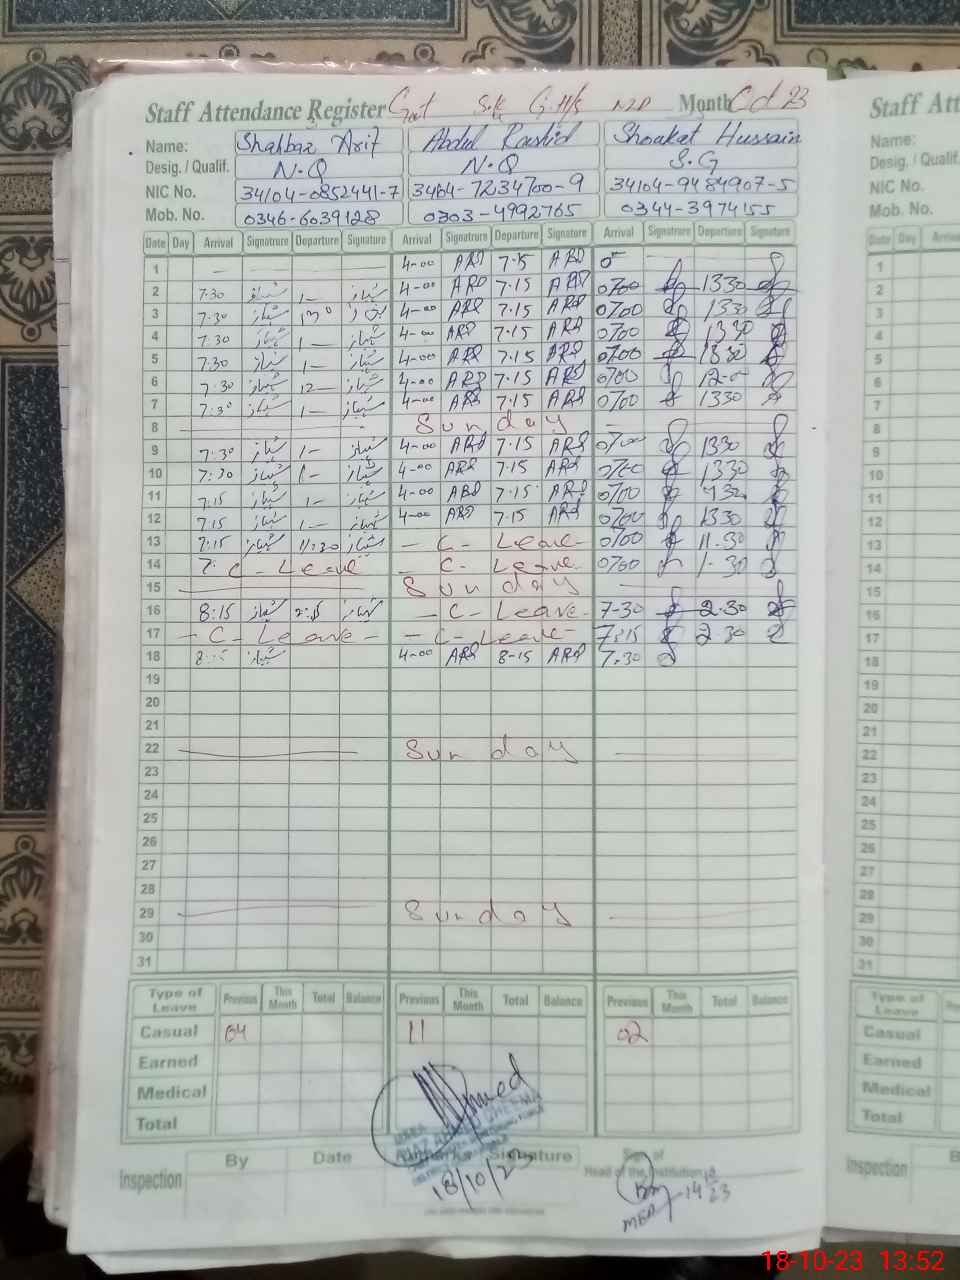 Staff Attendance Register Govt G.H/S NZP Month Oct 23
Name: Shahbaz Arif Abdul Rashid Shoakat Hussain
Desig. / Qualif. N.Q N.Q S.G
NIC No. 34104-0852441-7 3464-7234700-9 34104-9484907-5
Mob. No. 0346-6039128 0303-4992765 0344-3974155
Date Day Arrival Signatrure Departure Signature Arrival Signatrure Departure Signature Arrival Signatrure Departure Signature
1 4-00 ARD 7.15 ARD
2 7:30 شہباز 1— شہباز 4-00 ARD 7.15 ARD 0700 1330
3 7.30 شہباز 4-00 ARD 7.15 ARD 0700 1330
4 7.30 شہباز 1— شہباز 4-00 ARD 7.15 ARD 0700 1330
5 7:30 شہباز 1— شہباز 4-00 ARD 7.15 ARD 0700 1330
6 7.30 شہباز 12— شہباز 4-00 ARD 7.15 ARD 0700
7 7:30 شہباز 1— شہباز 4-00 ARD 7.15 ARD 0700 1330
8 Sunday
9 7.30 شہباز 1— شہباز 4-00 ARD 7.15 ARD 0700 1330
10 7:30 شہباز 1— شہباز 4-00 ARD 7.15 ARD 0700 1330
11 7.15 شہباز 1— شہباز 4-00 ARD 7.15 ARD 0700
12 7.15 شہباز 1— شہباز 4-00 ARD 7.15 ARD 0700 1330
13 7:15 شہباز 11:30 شہباز - C - Leave - 0700 11.30
14 C - Leave - C - Leave - 0700 1.30
15 Sunday
16 8:15 شہباز شہباز - C - Leave - 7-30 2.30
17 - C - Leave - - C - Leave - 7:15 2.30
18 شہباز 4-00 ARD 8-15 ARD 7.30
19
20
21
22 Sunday
23
24
25
26
27
28
29 Sunday
30
31
Type of Leave Previous This Month Total Balance Previous This Month Total Balance Previous This Month Total Balance
Casual 04 11 02
Earned
Medical
Total
Inspection By Date Signature Sign of Head of the Institution
18/10/23
MEA
Staff Att
Name:
Desig. / Qualif.
NIC No.
Mob. No.
Date Day
1
2
3
4
5
6
7
8
9
10
11
12
13
14
15
16
17
18
19
20
21
22
23
24
25
26
27
28
29
30
31
Type of Leave
Casual
Earned
Medical
Total
Inspection
18-10-23 13:52